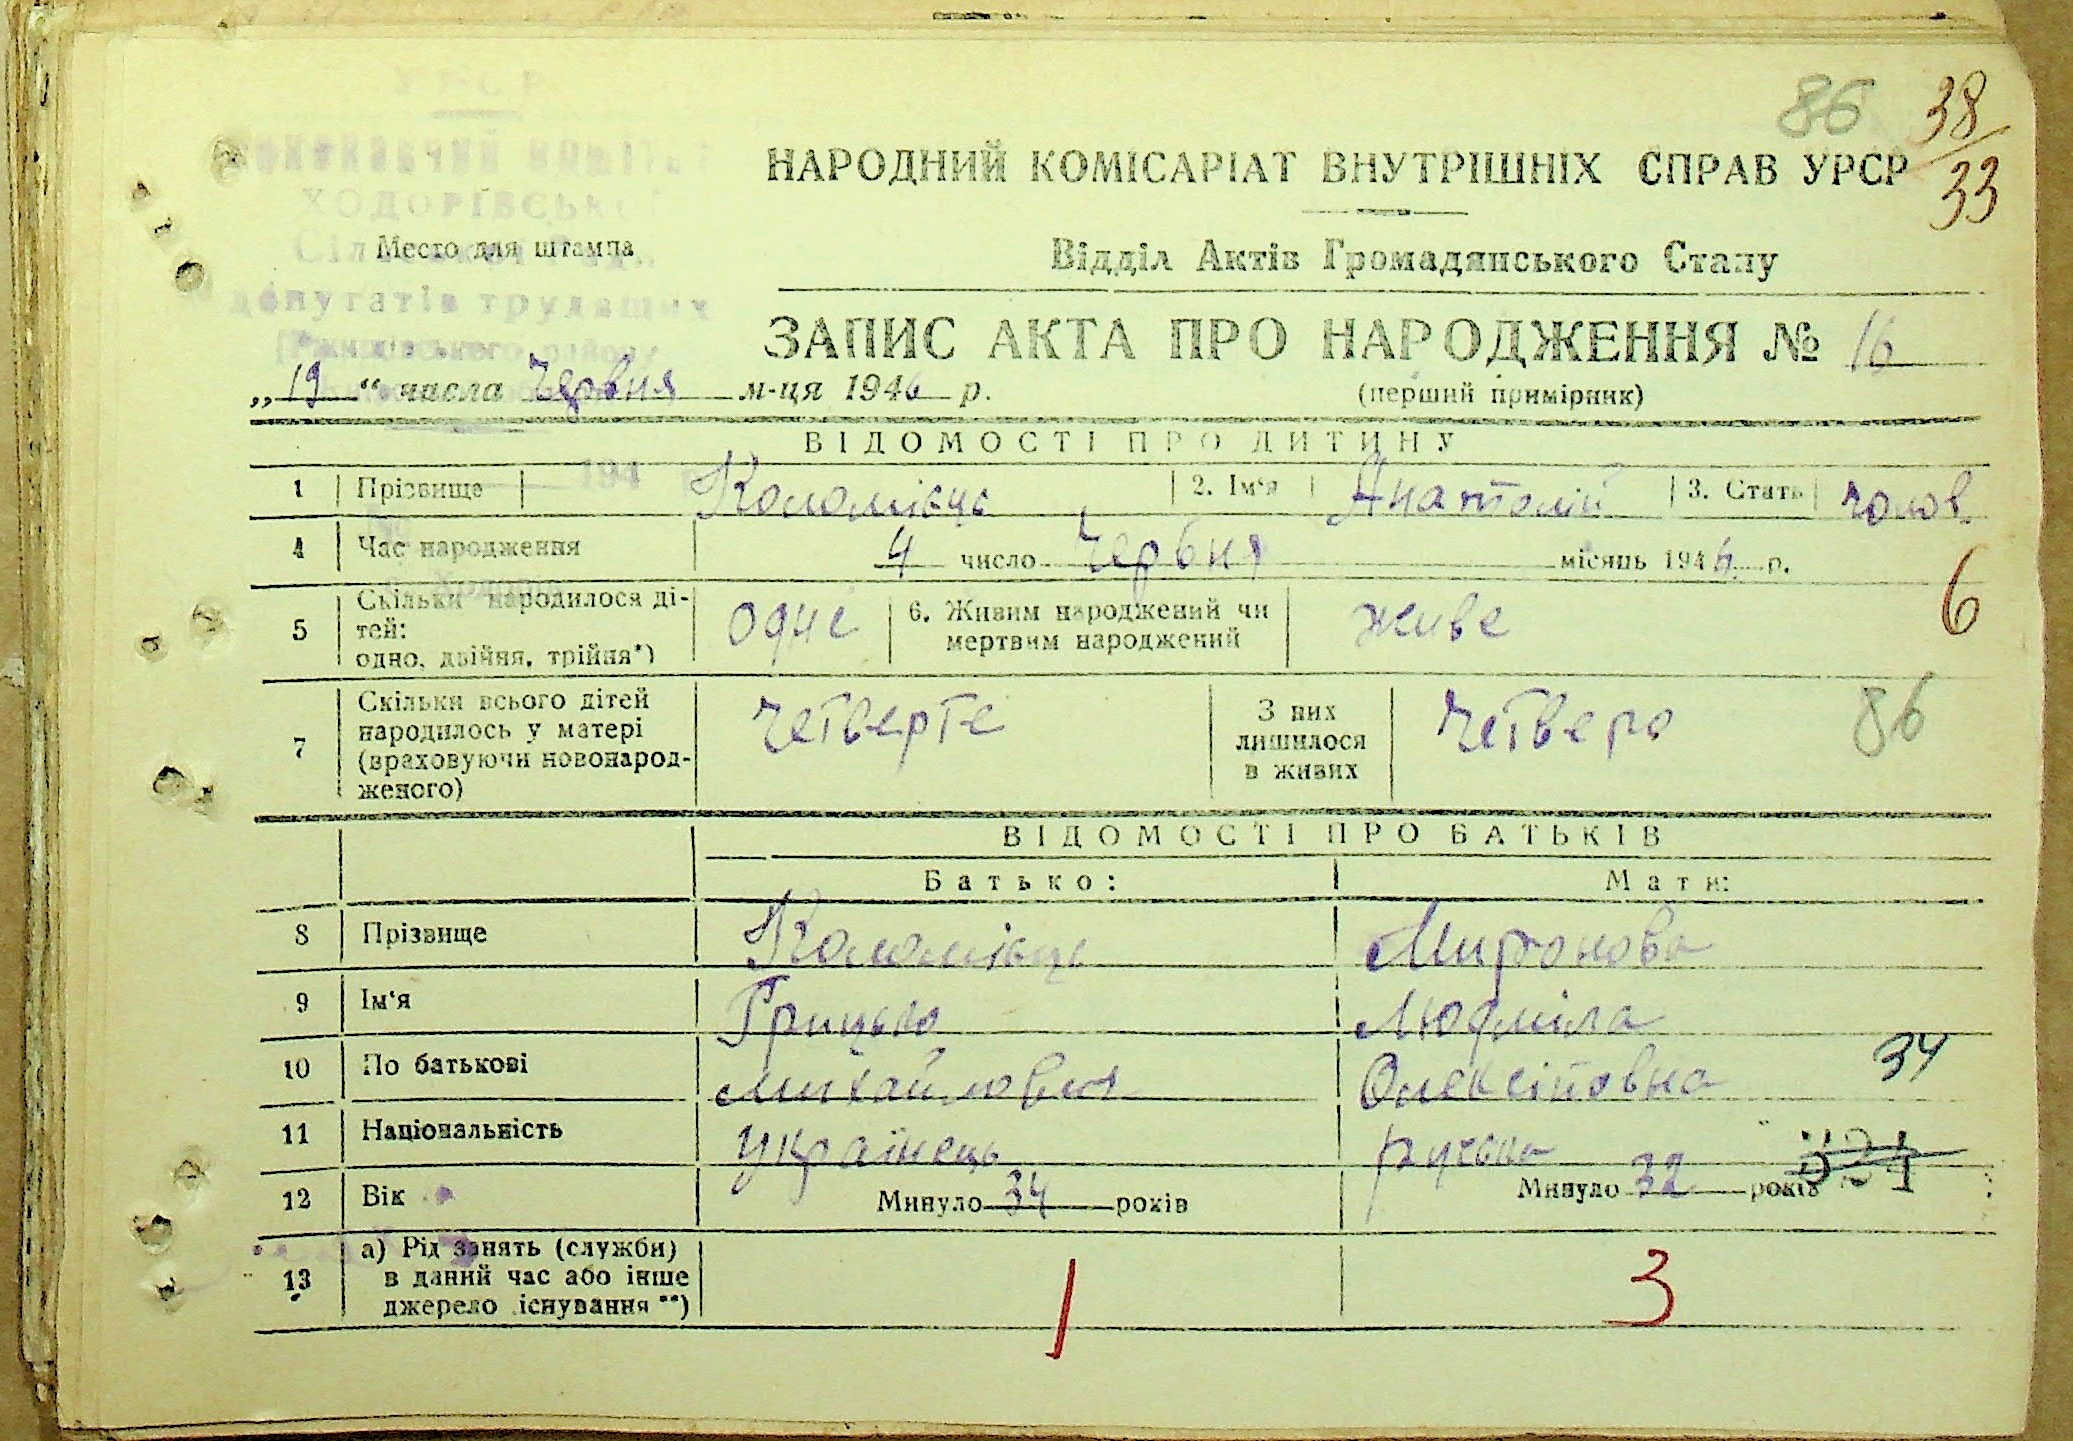 86 38/33
УРСР
ХОДОРІВСЬК
НАРОДНИЙ КОМІСАРІАТ ВНУТРІШНІХ СПРАВ УРСР
Место для штампа
Відділ Актів Громадянського Стану
депутатів трудящих
ЗАПИС АКТА ПРО НАРОДЖЕННЯ № 16
„19“ числа Червня м-ця 1946 р.
(перший примірник)
ВІДОМОСТІ ПРО ДИТИНУ
194
1 Прізвище Коломієць 2. Ім‘я Анатолій 3. Стать чолов.
4 Час народження 4 число Червня місяць 194 р.
6
5 Скільки народилося ді-
тей:
одно, двійня, трійня*)
одне
6. Живим народжений чи
мертвим народжений
живе
7 Скільки всього дітей
народилось у матері
(враховуючи новонарод-
женого)
четверте
З них
лишилося
в живих
четверо
86
ВІДОМОСТІ ПРО БАТЬКІВ
Батько: Мати:
8 Прізвище Коломієць Миронова
9 Ім‘я Грицько Людміла
10 По батькові Михайлович Олексіївна 34
11 Національність Українець руська
12 Вік Минуло 34 років Минуло 32 років
13 а) Рід занять (служби)
в даний час або інше
джерело існування **)
1 3